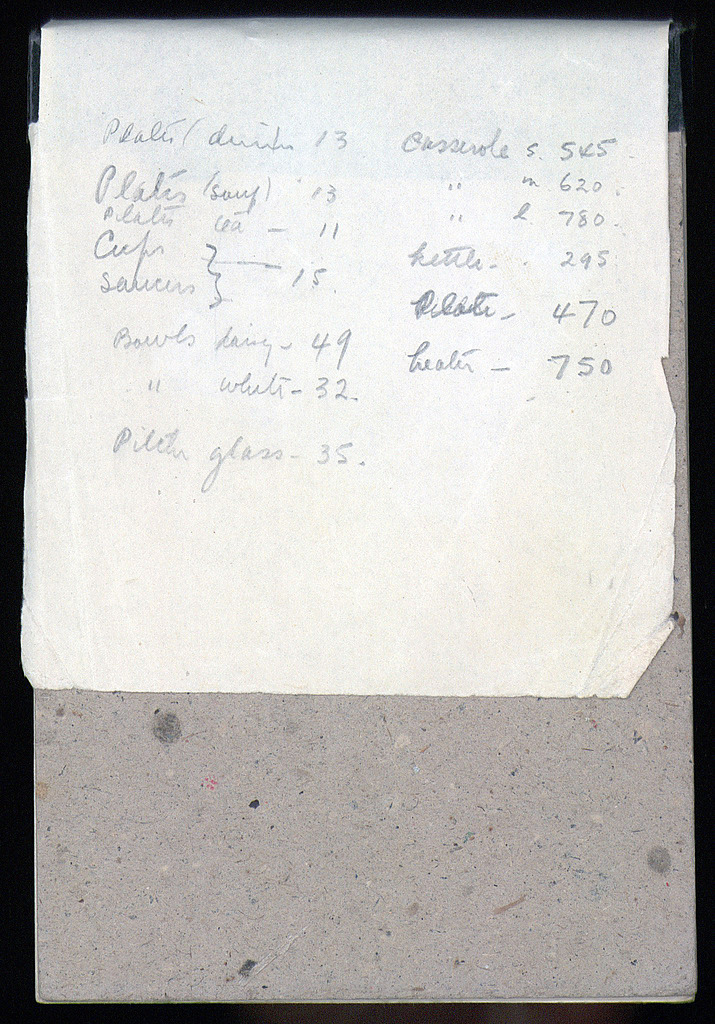 Plates (dinner 13
Plates (soup) 13
Plates tea - 11
Cups }
Saucers } — 15.
Bowls - 49
" white - 32.
glass - 35.
Casserole s. 545.
" m. 620.
" l. 780.
kettle - . 295
- 470
heater - 750